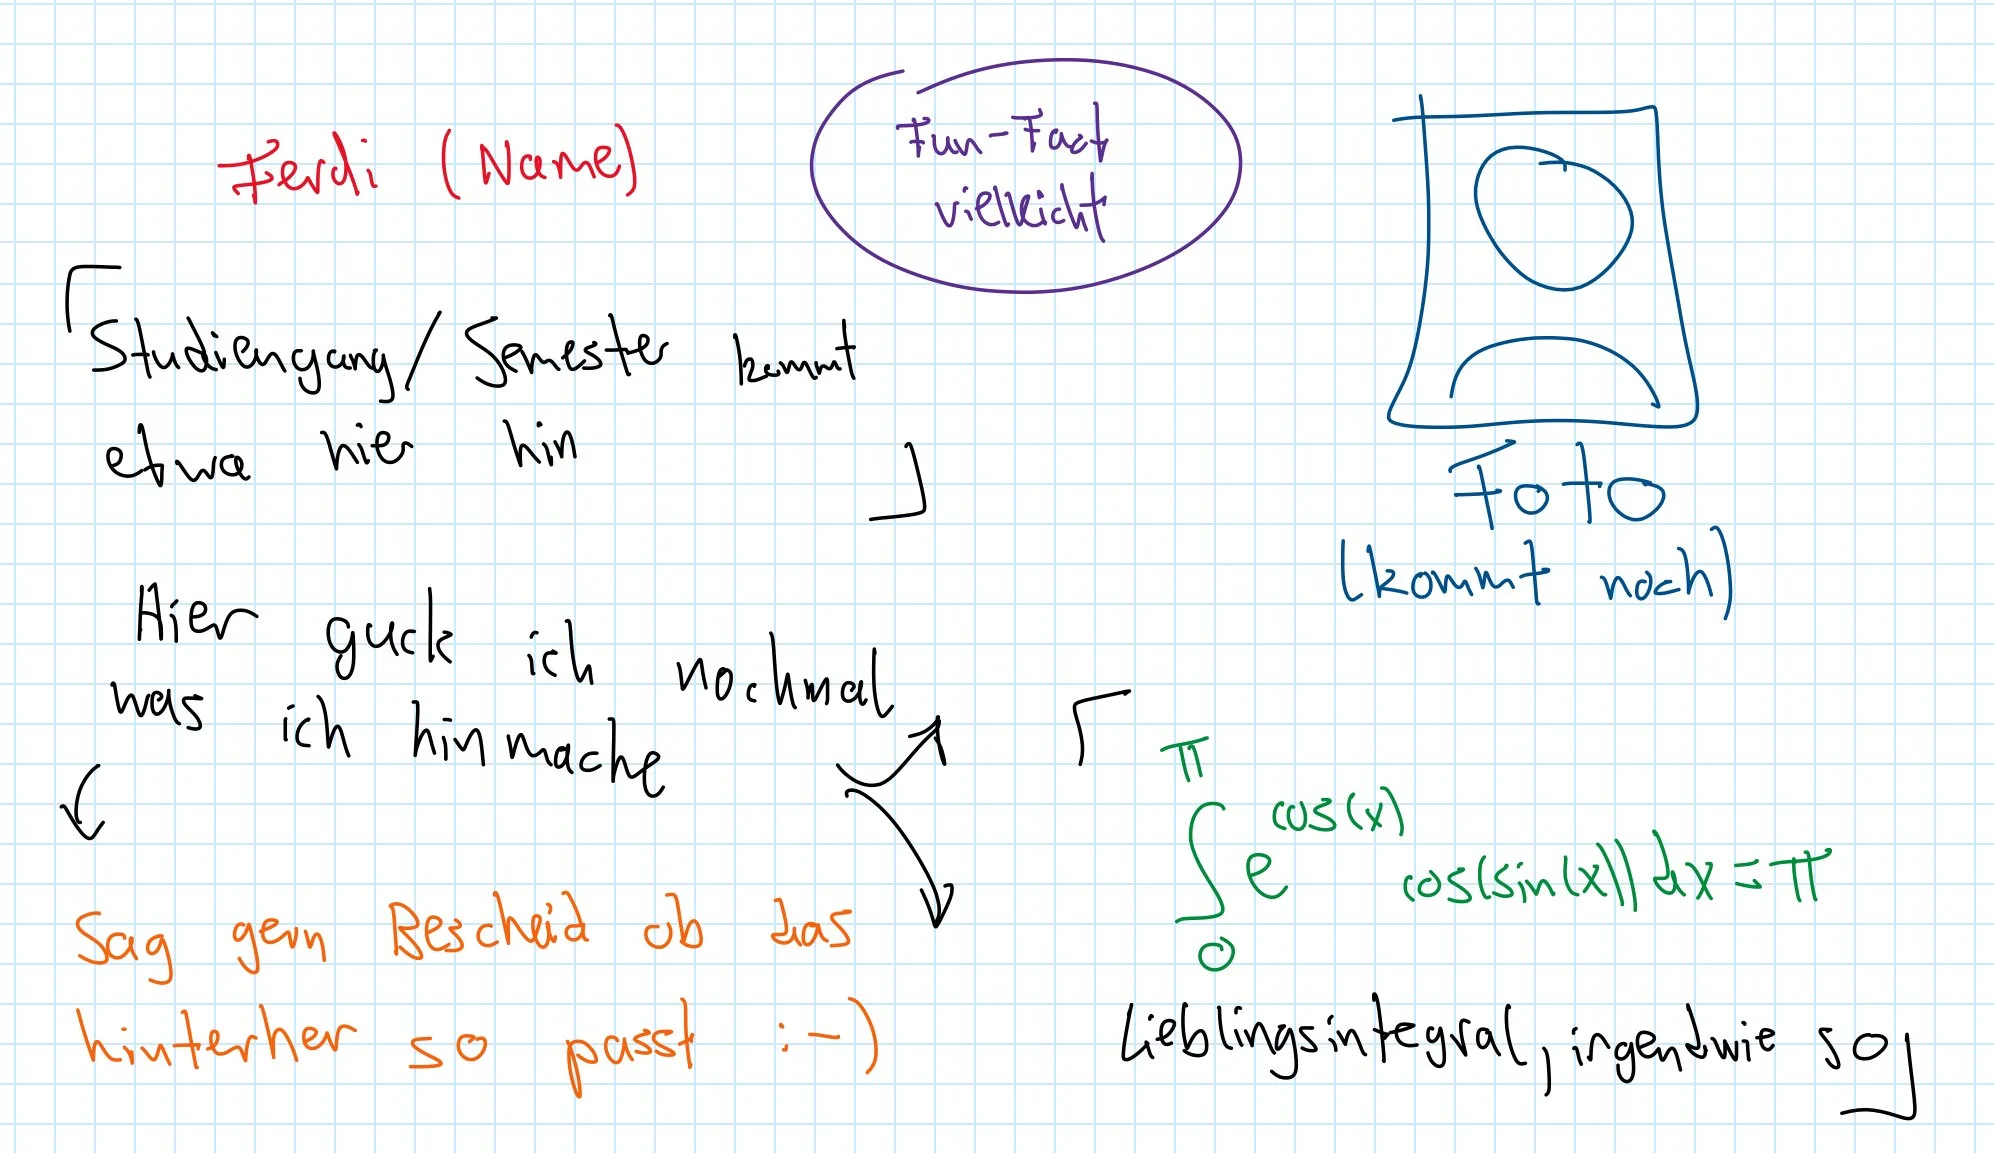 Ferdi (Name)
Fun-Fact
vielleicht
Studiengang/Semester kommt
etwa hier hin
Foto
(kommt noch)
Hier guck ich nochmal
was ich hinmache
Sag gern Bescheid ob das
hinterher so passt :-)
π
∫ e^cos(x) cos(sin(x)) dx = π
0
Lieblingsintegral, irgendwie so